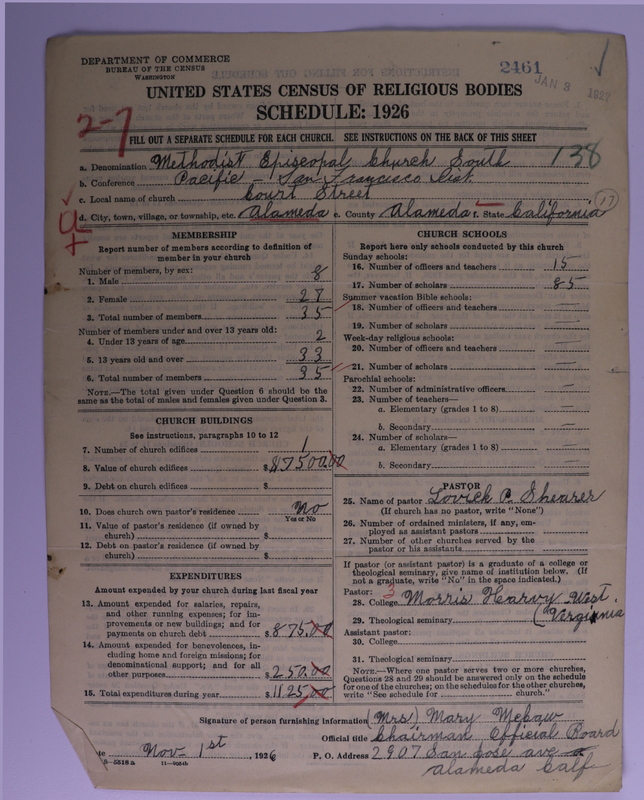 DEPARTMENT OF COMMERCE
BUREAU OF THE CENSUS
WASHINGTON
2461
JAN 3 1927
UNITED STATES CENSUS OF RELIGIOUS BODIES
SCHEDULE: 1926
2-7
FILL OUT A SEPARATE SCHEDULE FOR EACH CHURCH. SEE INSTRUCTIONS ON THE BACK OF THIS SHEET
a. Denomination Methodist Episcopal Church South 138
b. Conference Pacific - San Francisco Dist.
c. Local name of church Court Street
17
d. City, town, village, or township, etc. Alameda e. County Alameda f. State California
MEMBERSHIP
Report number of members according to definition of
member in your church
Number of members, by sex:
1. Male 8
2. Female 27
3. Total number of members 35
Number of members under and over 13 years old:
4. Under 13 years of age 2
5. 13 years old and over 33
6. Total number of members 35
NOTE.—The total given under Question 6 should be
same as the total of males and females given under Question 3.
CHURCH BUILDINGS
See instructions, paragraphs 10 to 12
7. Number of church edifices 1
8. Value of church edifices $ 17500.00
9. Debt on church edifices $
10. Does church own pastor's residence No
Yes or No
11. Value of pastor's residence (if owned by
church) $
12. Debt on pastor's residence (if owned by
church) $
EXPENDITURES
Amount expended by your church during last fiscal year
13. Amount expended for salaries, repairs,
and other running expenses; for im-
provements or new buildings; and for
payments on church debt $ 875.00
14. Amount expended for benevolences, in-
cluding home and foreign missions; for
denominational support; and for all
other purposes $ 250.00
15. Total expenditures during year $ 1125.00
CHURCH SCHOOLS
Report here only schools conducted by this church
Sunday schools:
16. Number of officers and teachers 15
17. Number of scholars 85
Summer vacation Bible schools:
18. Number of officers and teachers —
19. Number of scholars —
Week-day religious schools:
20. Number of officers and teachers —
21. Number of scholars —
Parochial schools:
22. Number of administrative officers —
23. Number of teachers—
a. Elementary (grades 1 to 8) —
b. Secondary —
24. Number of scholars—
a. Elementary (grades 1 to 8) —
b. Secondary —
PASTOR
25. Name of pastor Lovick P. Shearer
(If church has no pastor, write "None")
26. Number of ordained ministers, if any, em-
ployed as assistant pastors
27. Number of other churches served by the
pastor or his assistants
If pastor (or assistant pastor) is a graduate of a college or
theological seminary, give name of institution below. (If
not a graduate, write "No" in the space indicated.)
Pastor: 3
28. College Morris Hearvy West
29. Theological seminary (Verginia
Assistant pastor:
30. College
31. Theological seminary
NOTE.—Where one pastor serves two or more churches,
Questions 28 and 29 should be answered only on the schedule
for one of the churches; on the schedules for the other churches,
write "See schedule for church."
Signature of person furnishing information (Mrs) Mary
Official title Chairman Official Board
te Nov- 1st, 1926 P. O. Address 2907 San Jose ave
8-5518a 11-9034b Alameda Calf